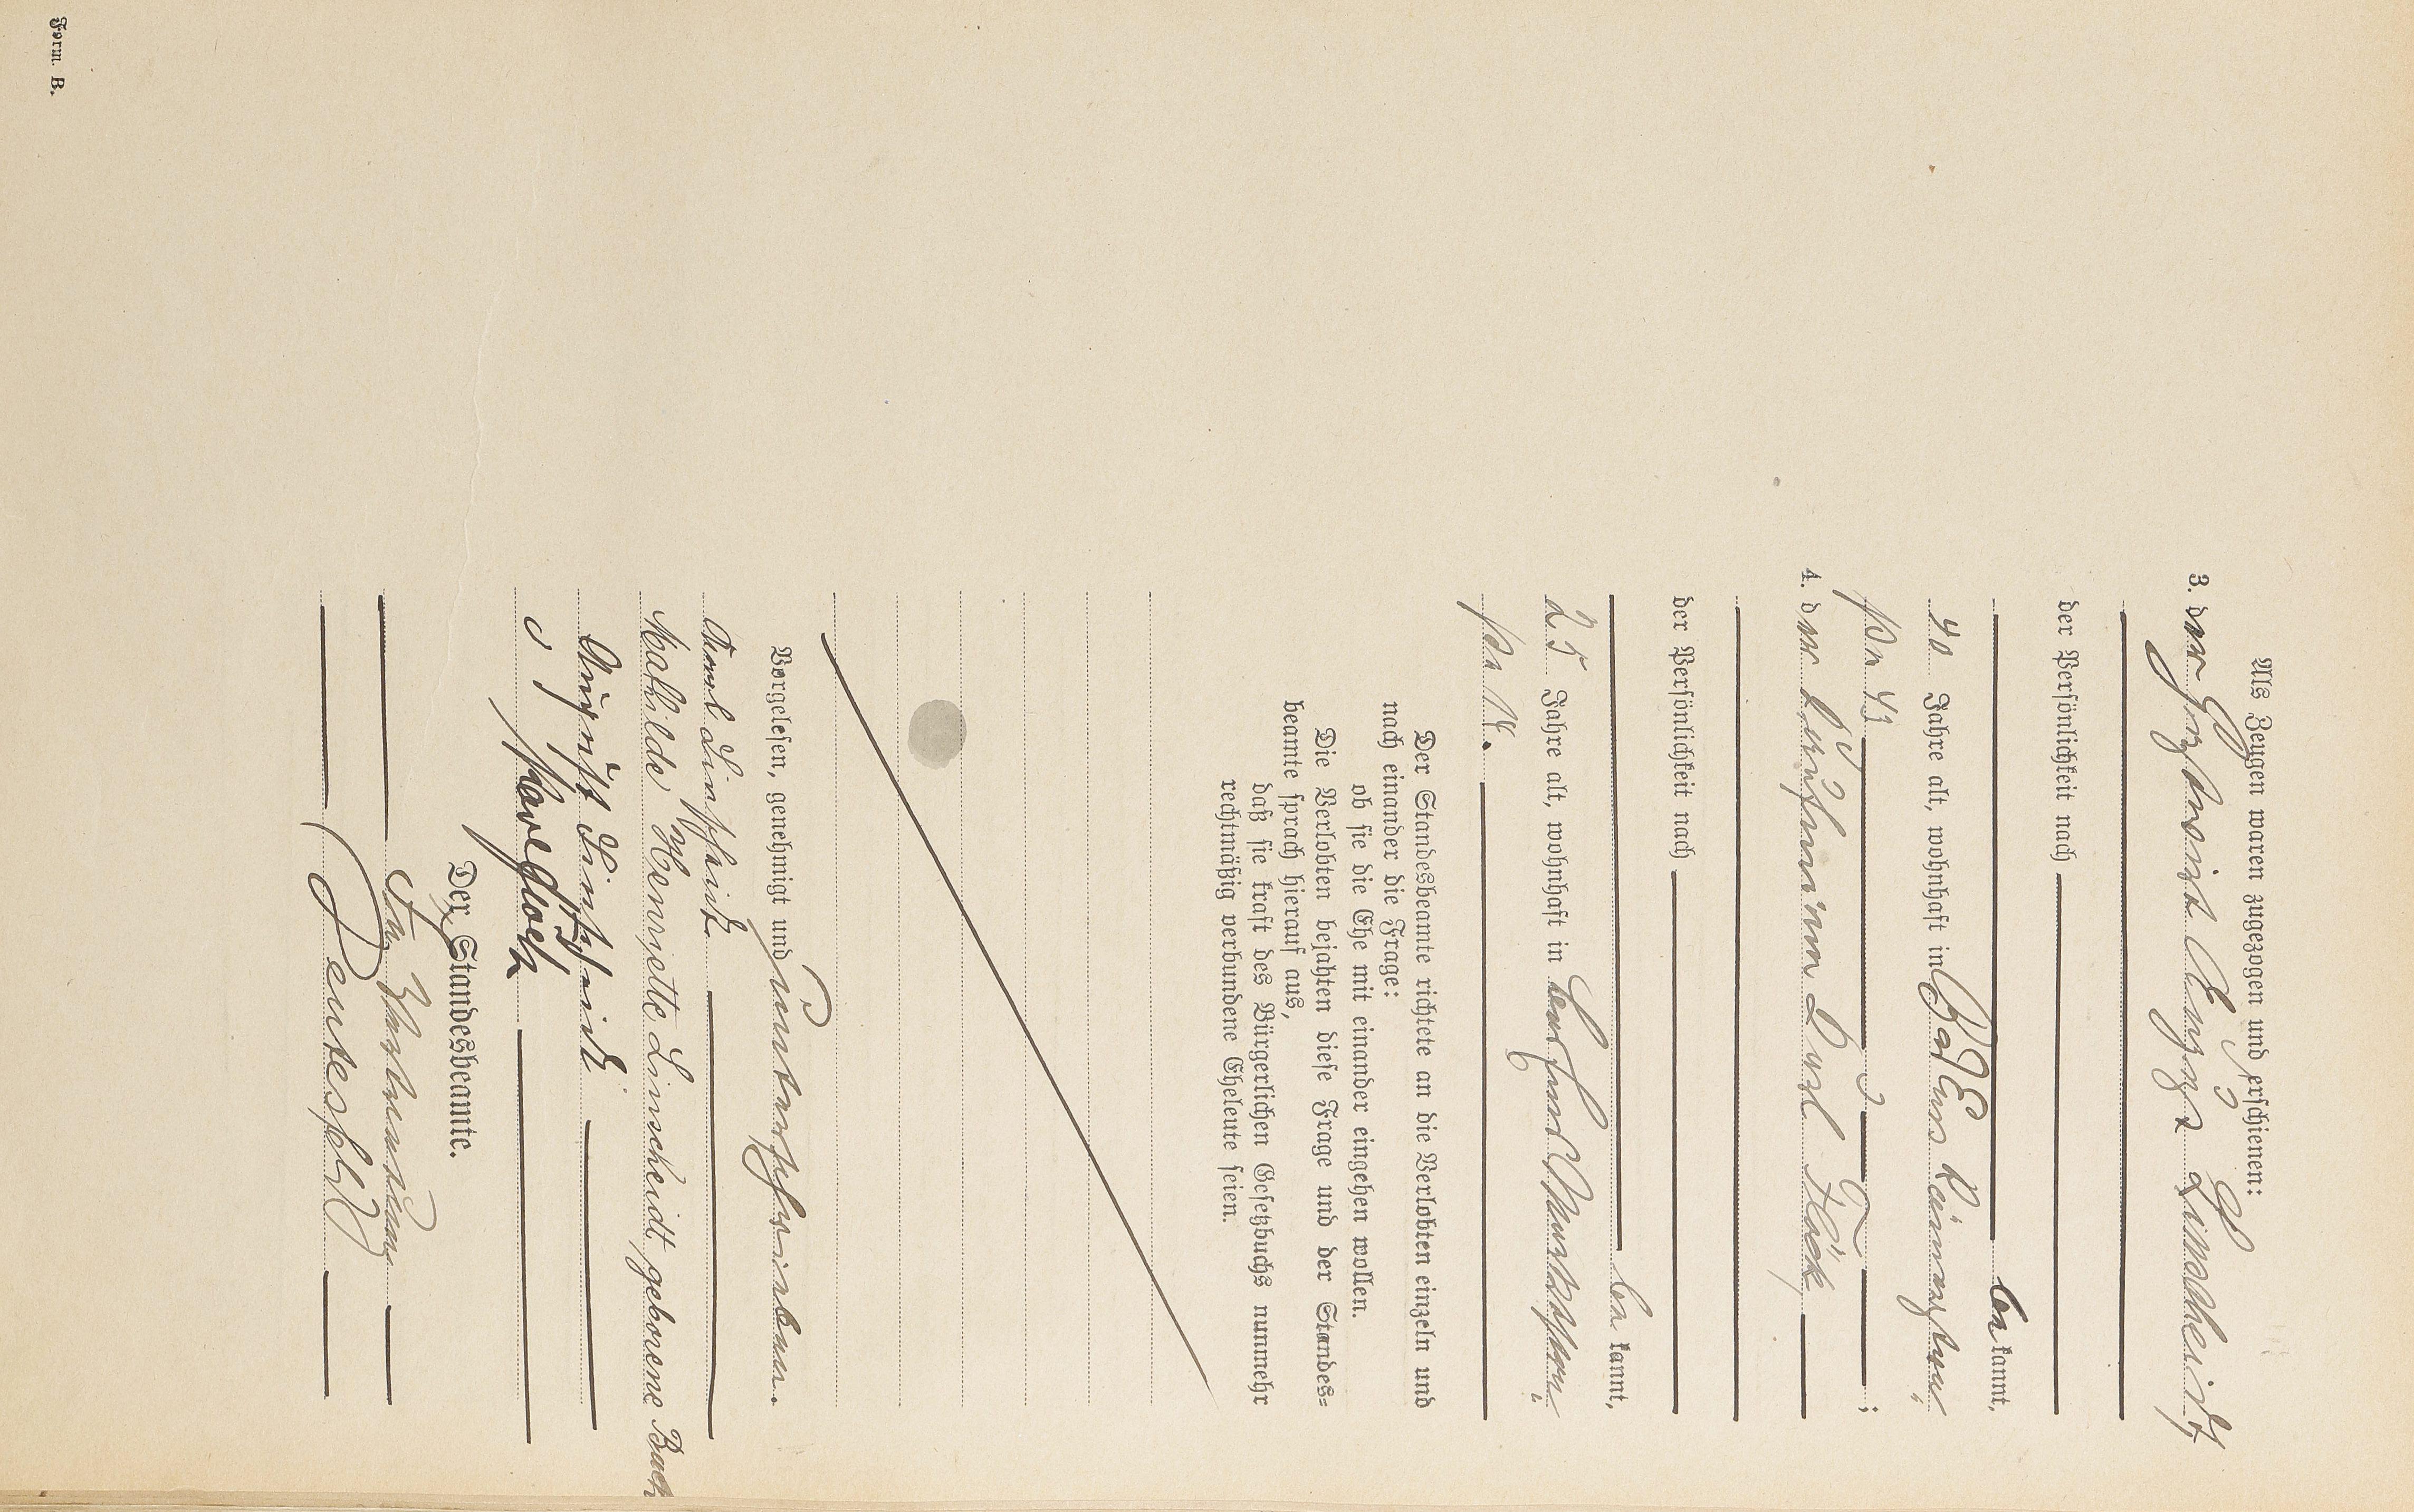 Als Zeugen waren zugezogen und erschienen:
3. der August Linscheidt,
der Persönlichkeit nach
be kannt,
40 Jahre alt, wohnhaft in
43 ;
4. der Kaufmann Karl
der Persönlichkeit nach
be kannt,
25 Jahre alt, wohnhaft in
Der Standesbeamte richtete an die Verlobten einzeln und
nach einander die Frage:
ob sie die Ehe mit einander eingehen wollen.
Die Verlobten bejahten diese Frage und der Standes-
beamte sprach hierauf aus,
daß sie kraft des Bürgerlichen Gesetzbuchs nunmehr
rechtmäßig verbundene Eheleute seien.
Vorgelesen, genehmigt und unterschrieben.
Linscheidt
Mathilde Henriette Linscheidt geborene Buch
August Linscheidt
Der Standesbeamte.
In Vertretung
Form. B.